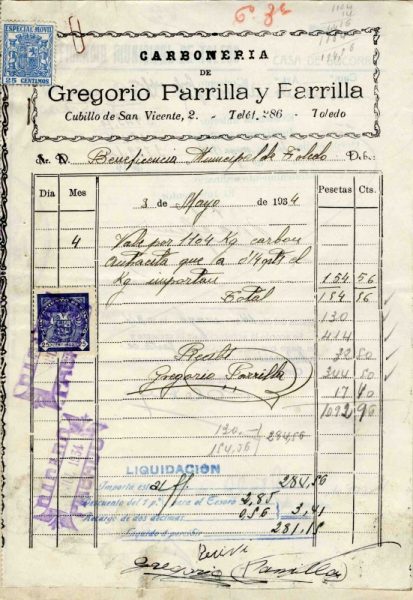 6º 92
1104
14
ESPECIAL MÓVIL
25 CENTIMOS
CARBONERIA
DE
Gregorio Parrilla y Parrilla
Cubillo de San Vicente, 2. - Teléf. 286 - Toledo
Sr. D. Beneficencia Municipal de Toledo Debe:
Día Mes Pesetas Cts.
3 de Mayo de 1934
4 Vale por 1104 Kg carbon
antracita que la a 14 el
Kg importan 154 56
Total 154 56
130
414
Recibí 22 80
Gregorio Parrilla 344 80
17 40
1092 90
130
154,56 284,56
LIQUIDACIÓN
Importe 284,56
Descuento del 1 p% para el Tesoro 2,85
Rebaja de dos décimas 0,56 3,41
Líquido a percibir 281,15
Recibí
Gregorio Parrilla